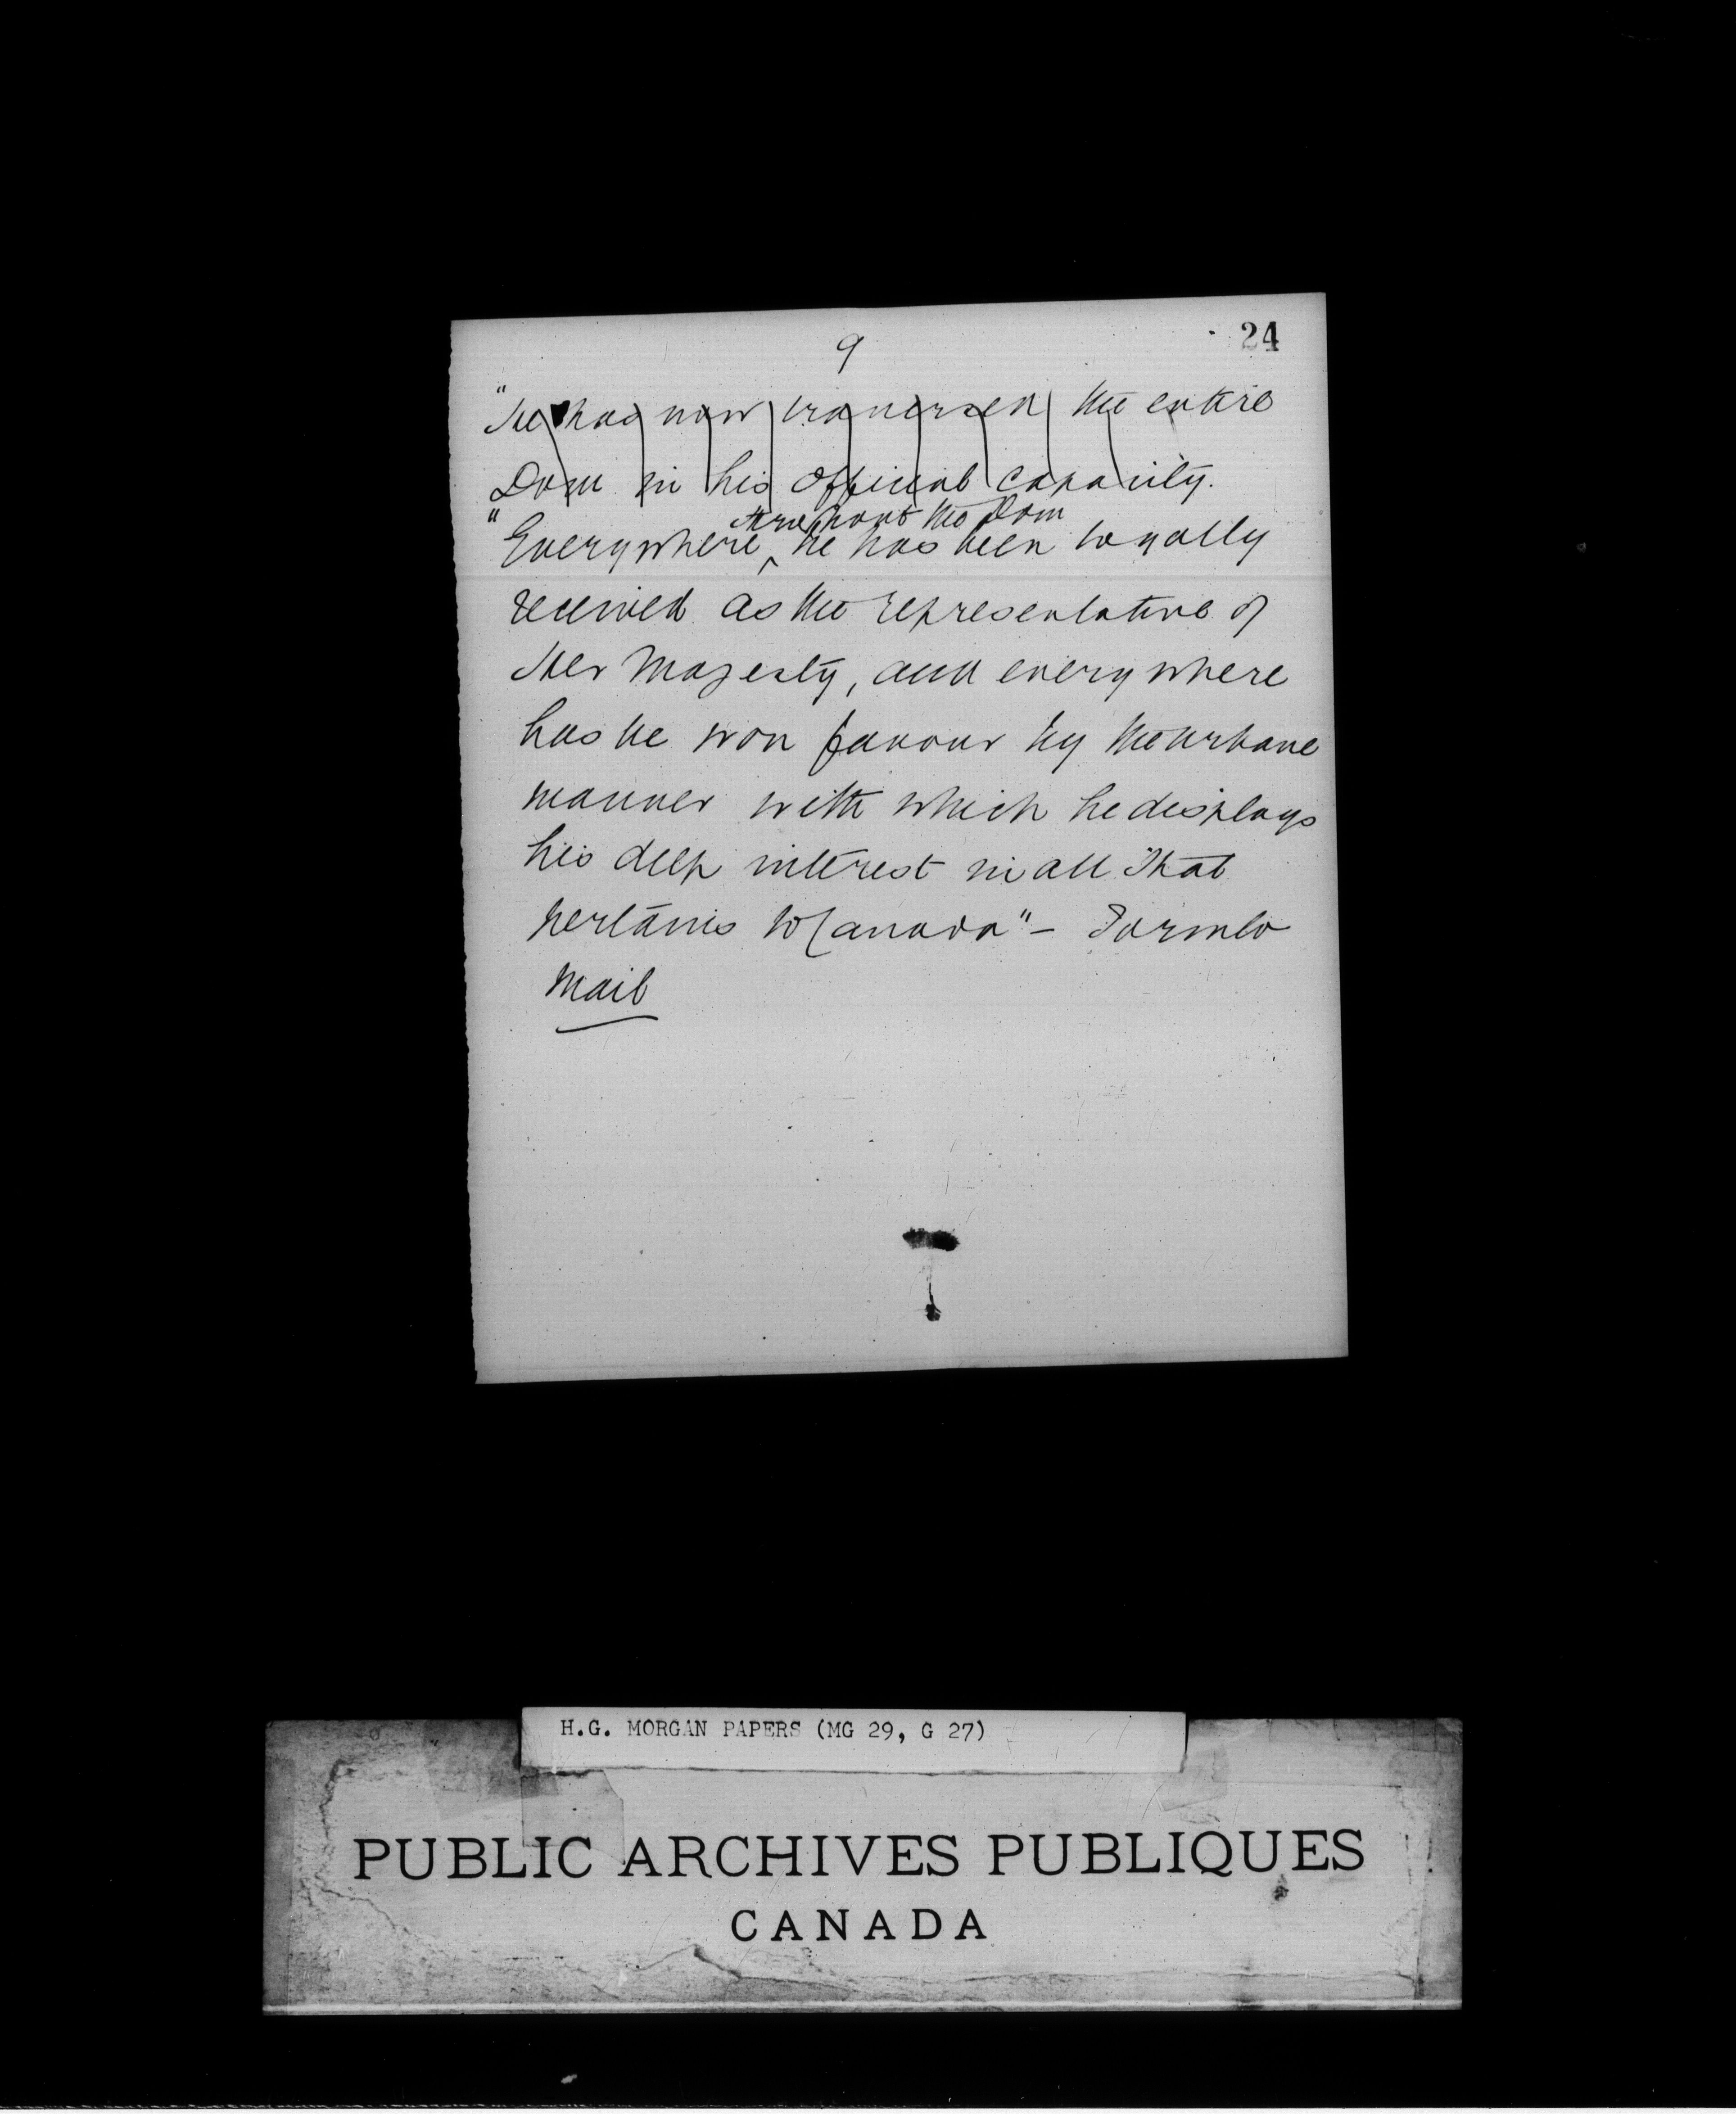 24
9
"He has now traversed the entire
Dom in his official capacity.
thro'hout the Dom
"Everywhere ^ he has been loyally
received as the representative of
Her Majesty, and everywhere
has he won favour by the urbane
manner with which he displays
his deep interest in all that
pertains to Canada" – Toronto
Mail
H.G. MORGAN PAPERS (MG 29, G 27)
PUBLIC ARCHIVES PUBLIQUES
CANADA